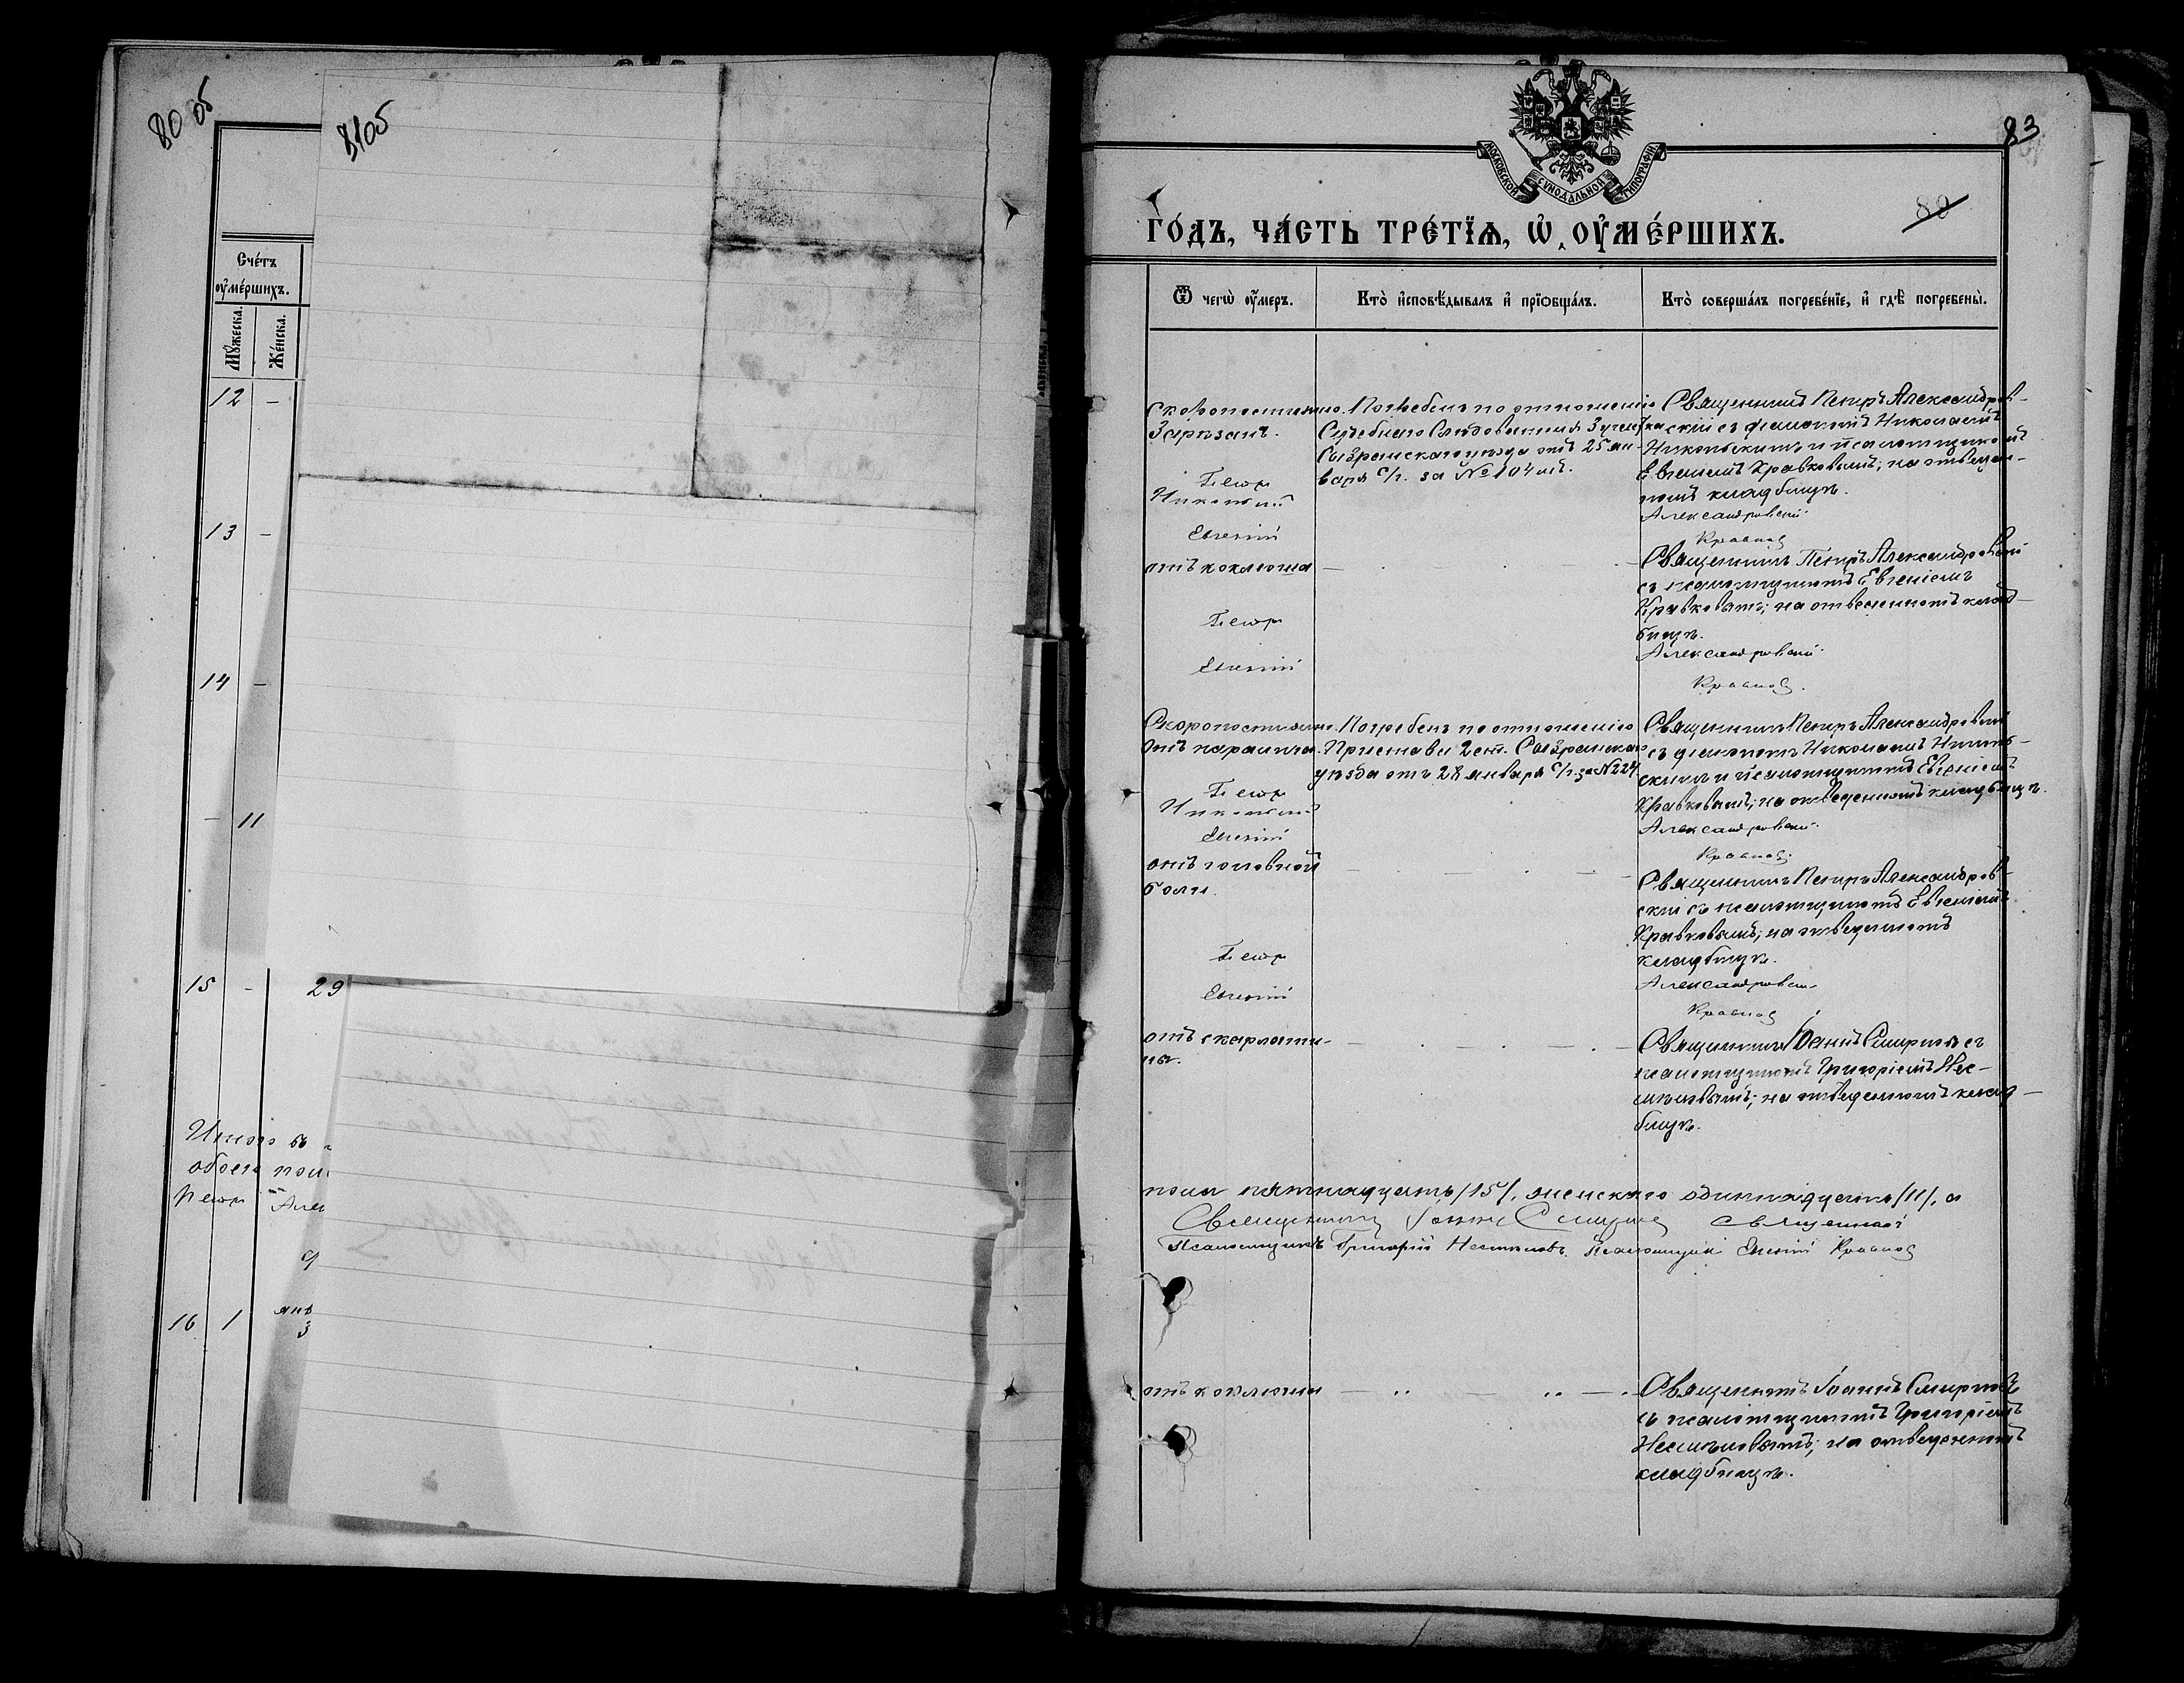 80 об
81 об
Сче́тъ
оу҆ме́ршихъ.
Мꙋ́жеска.
Же́нска.
12 -
13 -
14 -
- 11
15 - 29
Итого въ
обоего пол
Петръ Алек
янв
16 1 3
83
МОСКОВСКОЙ СѴНОДАЛЬНОЙ ТИПОГРАФІИ
80
ГО́ДЪ, ЧА́СТЬ ТРЕ́ТЇѦ, Ѡ҆ ОУ҆МЕ́РШИХЪ.
Ѿ чегѡ̀ оу҆́меръ.
Кто̀ и҆сповѣ́дывалъ и҆ прїѡбща́лъ.
Кто̀ соверша́лъ погребе́нїе, и҆ гдѣ̀ погребены̀.
Скоропостижно.
Зарѣзанъ.
Петръ
Николай
Евгеній
Погребенъ по отношенію
Судебнаго Слѣдователя 3 участка
Сызранскаго уѣзда отъ 25 ян-
варя с/г. за № 104 мъ.
Священникъ Петръ Александров-
скій съ діакономъ Николаемъ
Никольскимъ и псаломщикомъ
Евгеніемъ Кравковымъ; на отведен-
номъ кладбищѣ.
Александровскій
Кравковъ
отъ коклюша
Петръ
Евгеній
Священникъ Петръ Александровскій
съ псаломщикомъ Евгеніемъ
Кравковымъ; на отведенномъ клад-
бищѣ.
Александровскій
Кравковъ.
Скоропостижно.
отъ паралича.
Петръ
Николай
Евгеній
Погребенъ по отношенію
Пристава 2 ст. Сызранскаго
уѣзда отъ 28 января с/г. за № 224.
Священникъ Петръ Александровскій
съ діакономъ Николаемъ Николь-
скимъ и псаломщикомъ Евгеніемъ
Кравковымъ; на отведенномъ кладбищѣ.
Александровскій
Кравковъ.
отъ головной
боли.
Петръ
Евгеній
Священникъ Петръ Александров-
скій съ псаломщикомъ Евгеніемъ
Кравковымъ; на отведенномъ
кладбищѣ.
Александровскій
Кравковъ
отъ скарлати-
ны.
Священникъ Іоаннъ Смирновъ съ
псаломщикомъ Григоріемъ Нес-
мѣловымъ; на отведенномъ клад-
бищѣ.
пола пятнадцать /15/, женскаго одиннадцать /11/, а
Священникъ Іоаннъ Смирновъ Священникъ
Псаломщикъ Григорій Несмѣловъ. Псаломщикъ Евгеній Кравковъ
отъ коклюша
Священникъ Іоаннъ Смирновъ
съ псаломщикомъ Григоріемъ
Несмѣловымъ; на отведенномъ
кладбищѣ.